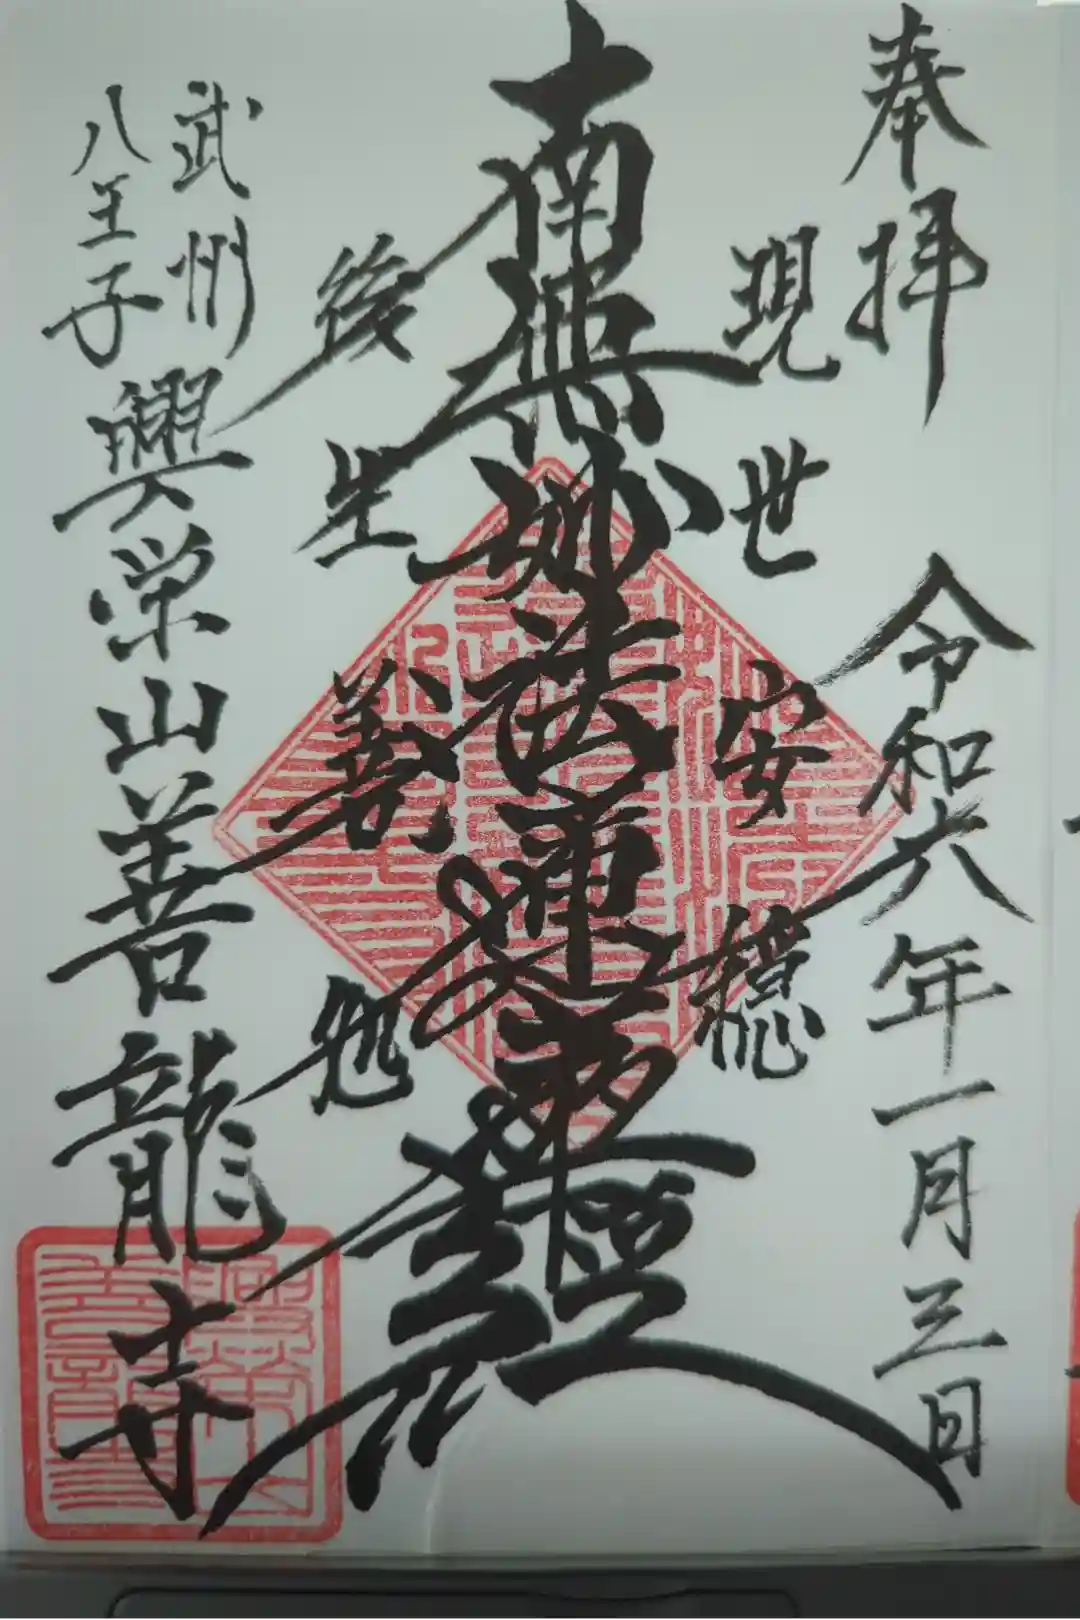 奉拝
令和六年一月三日
現世安穏
南無妙法蓮華經
後生善処
武州
八王子
興栄山善龍寺